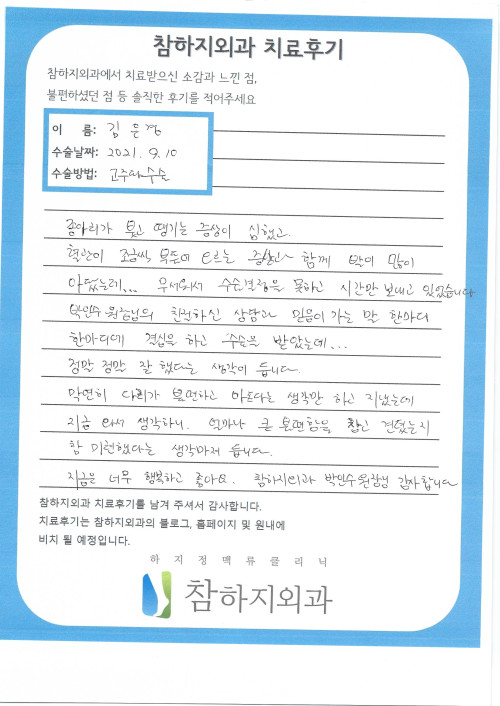 참하지외과 치료후기
참하지외과에서 치료받으신 소감과 느낀 점,
불편하셨던 점 등 솔직한 후기를 적어주세요
이 름: 김은경
수술날짜: 2021. 9. 10
수술방법: 고주파수술
종아리가 붓고 땡기는 증상이 심했고.
혈관이 조금씩 목두어 오르는 증상과 함께 밤이 많이
아팠는데... 무서워서 수술결정을 못하고 시간만 보내고 있었습니다
박인수 원장님의 친절하신 상담과 믿음이 가는 말 한마디
한마디에 결심을 하고 수술을 받았는데...
정말 정말 잘 했다는 생각이 듭니다.
막연히 다리가 불편하고 아프다는 생각만 하고 지냈는데
지금 와서 생각하니. 얼마나 큰 불편함을 참고 견뎠는지
참 미련했다는 생각마저 듭니다.
지금은 너무 행복하고 좋아요. 참하지외과 박인수원장님 감사합니다
참하지외과 치료후기를 남겨 주셔서 감사합니다.
치료후기는 참하지외과의 블로그, 홈페이지 및 원내에
비치 될 예정입니다.
하지정맥류클리닉
참하지외과